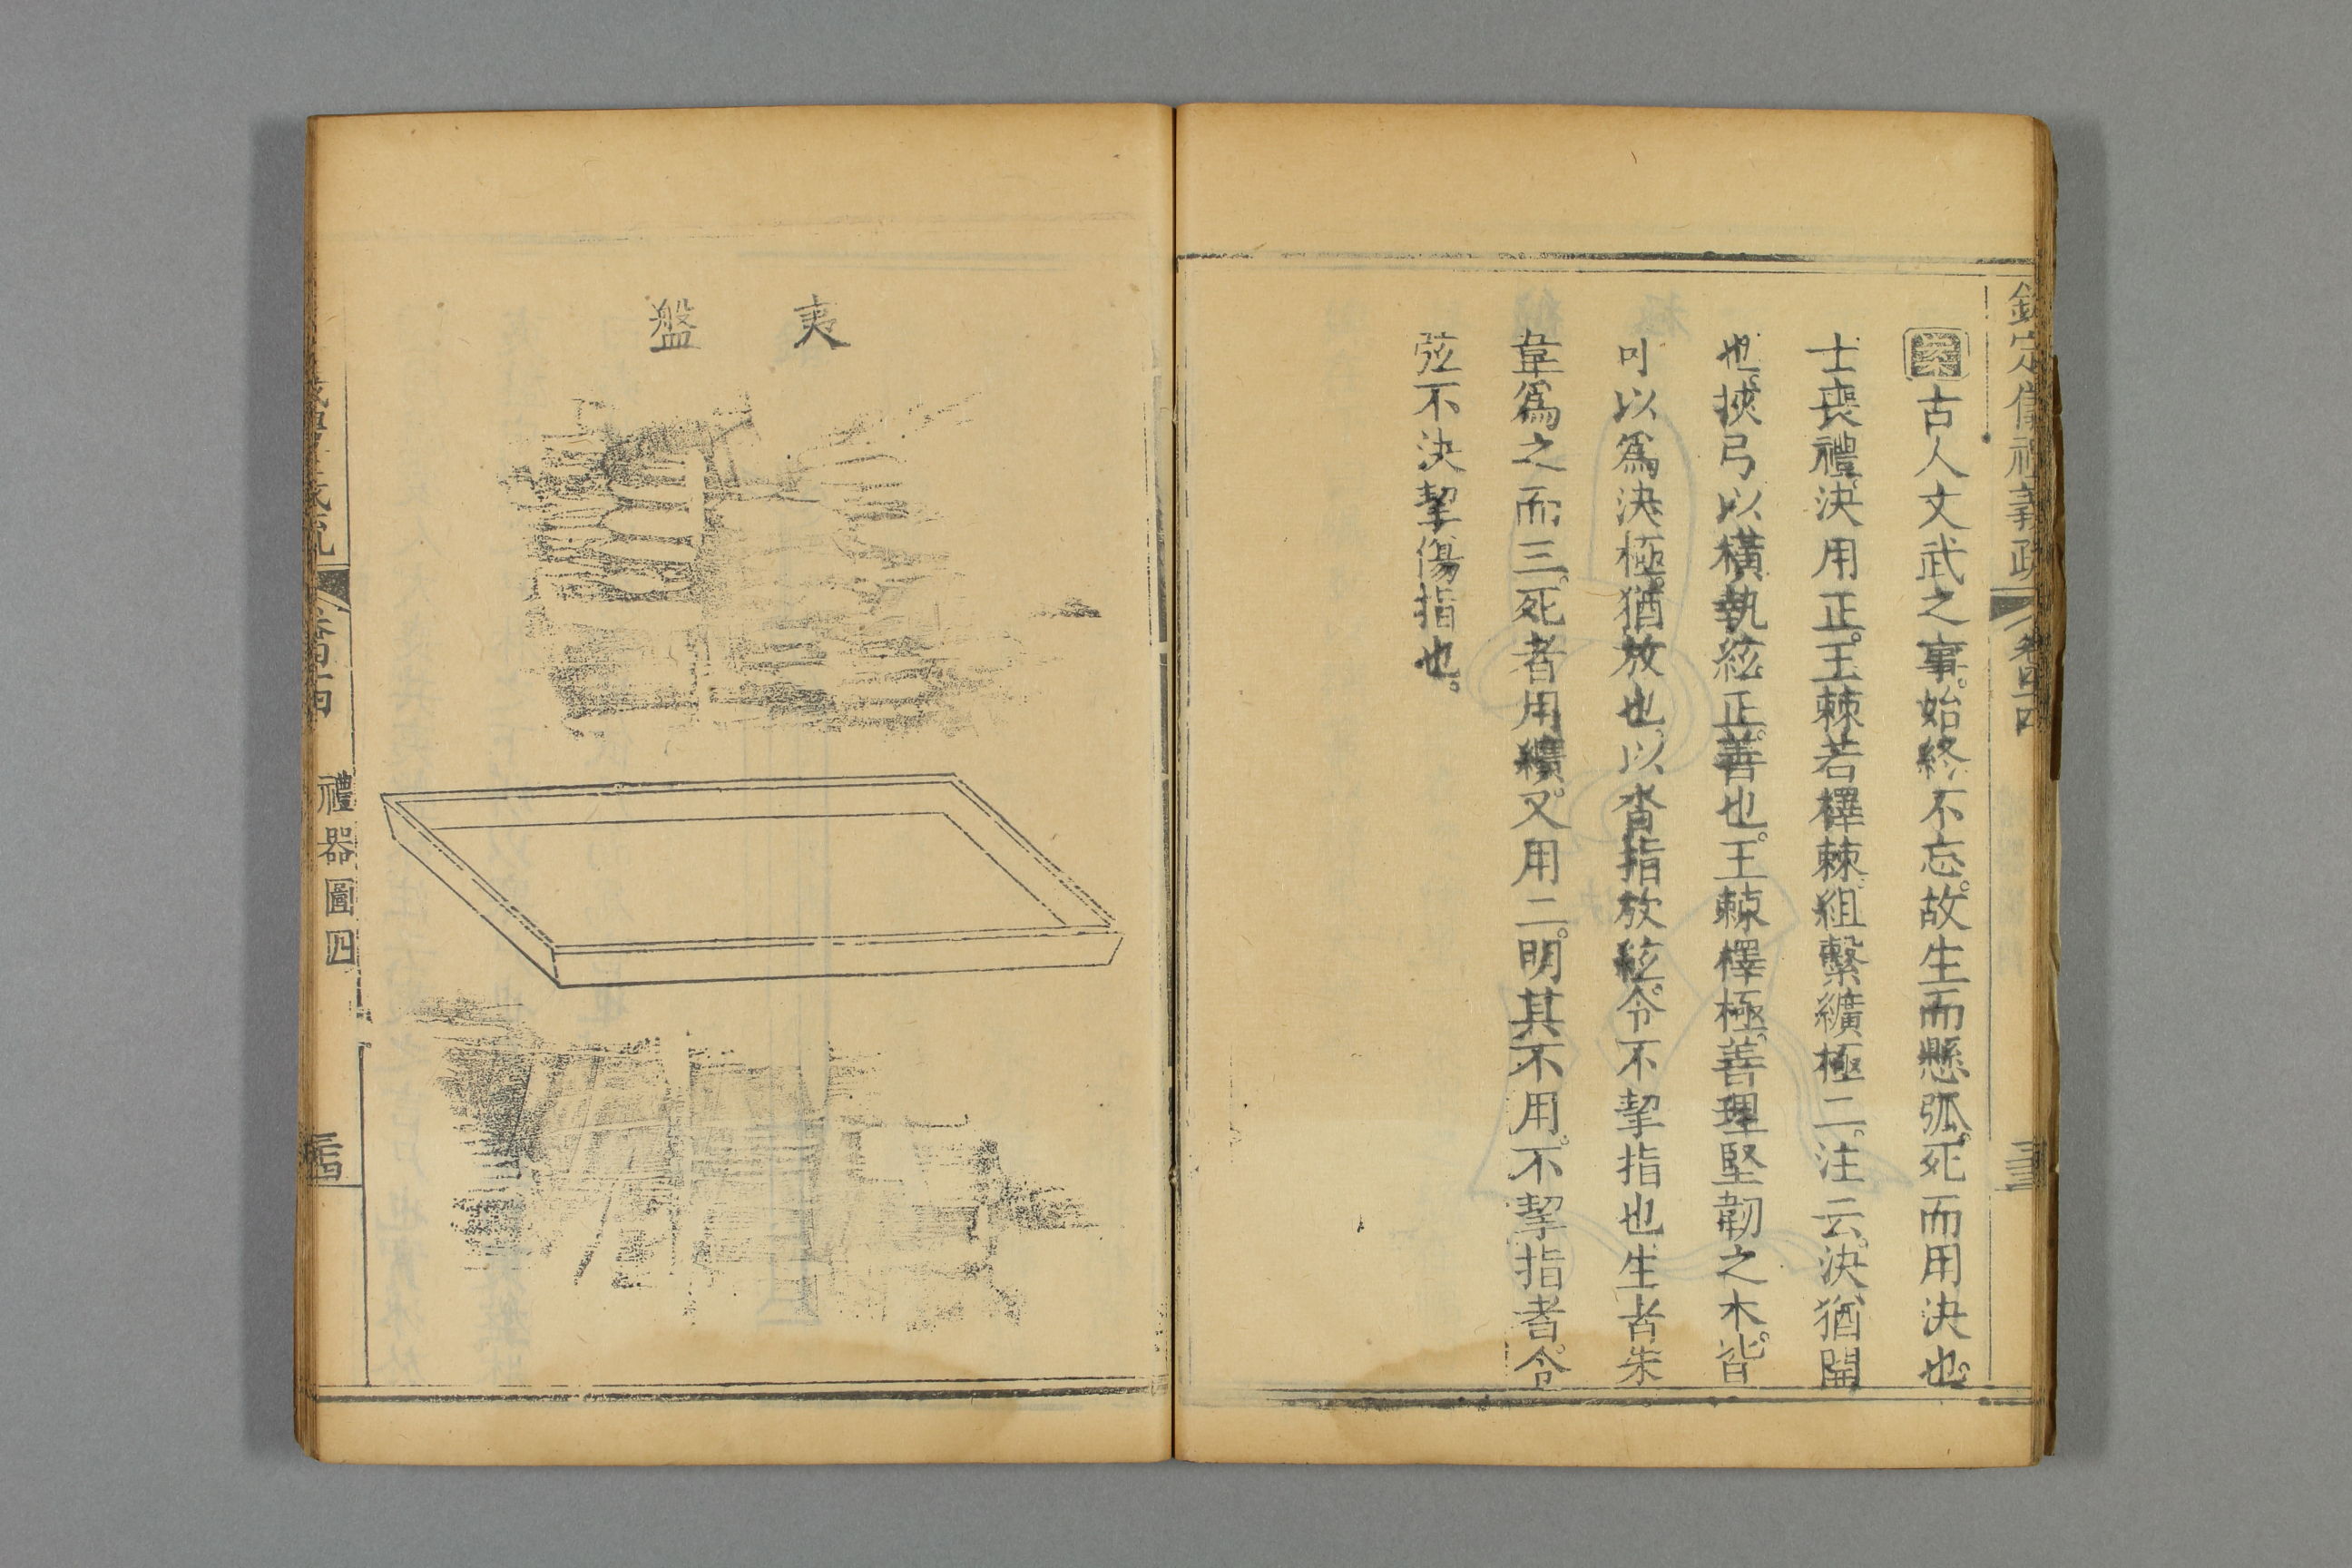 欽定儀禮義疏 卷四十四
案古人文武之事。始終不忘。故生而懸弧。死而用決也。
士喪禮。決用正。王棘若檡棘。組繫纊極二。注云。決。猶闓
也。挾弓以橫執絃。正。善也。王棘檡極。善理堅韌之木。皆
可以爲決極。猶放也。以沓指放絃。令不挈指也。生者朱
韋爲之而三。死者用纊。又用二。明其不用。不挈指者。令
弦不決挈傷指也。
夷盤
禮器圖四